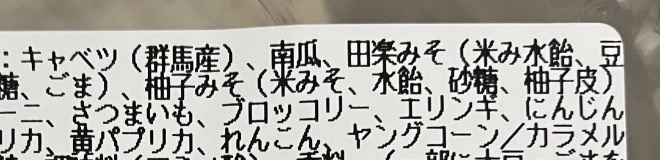 ：キャベツ（群馬産）、南瓜、田楽みそ（米み水飴、豆
糖、ごま）、柚子みそ（米みそ、水飴、砂糖、柚子皮）
ーニ、さつまいも、ブロッコリー、エリンギ、にんじん
リカ、黄パプリカ、れんこん、ヤングコーン／カラメル